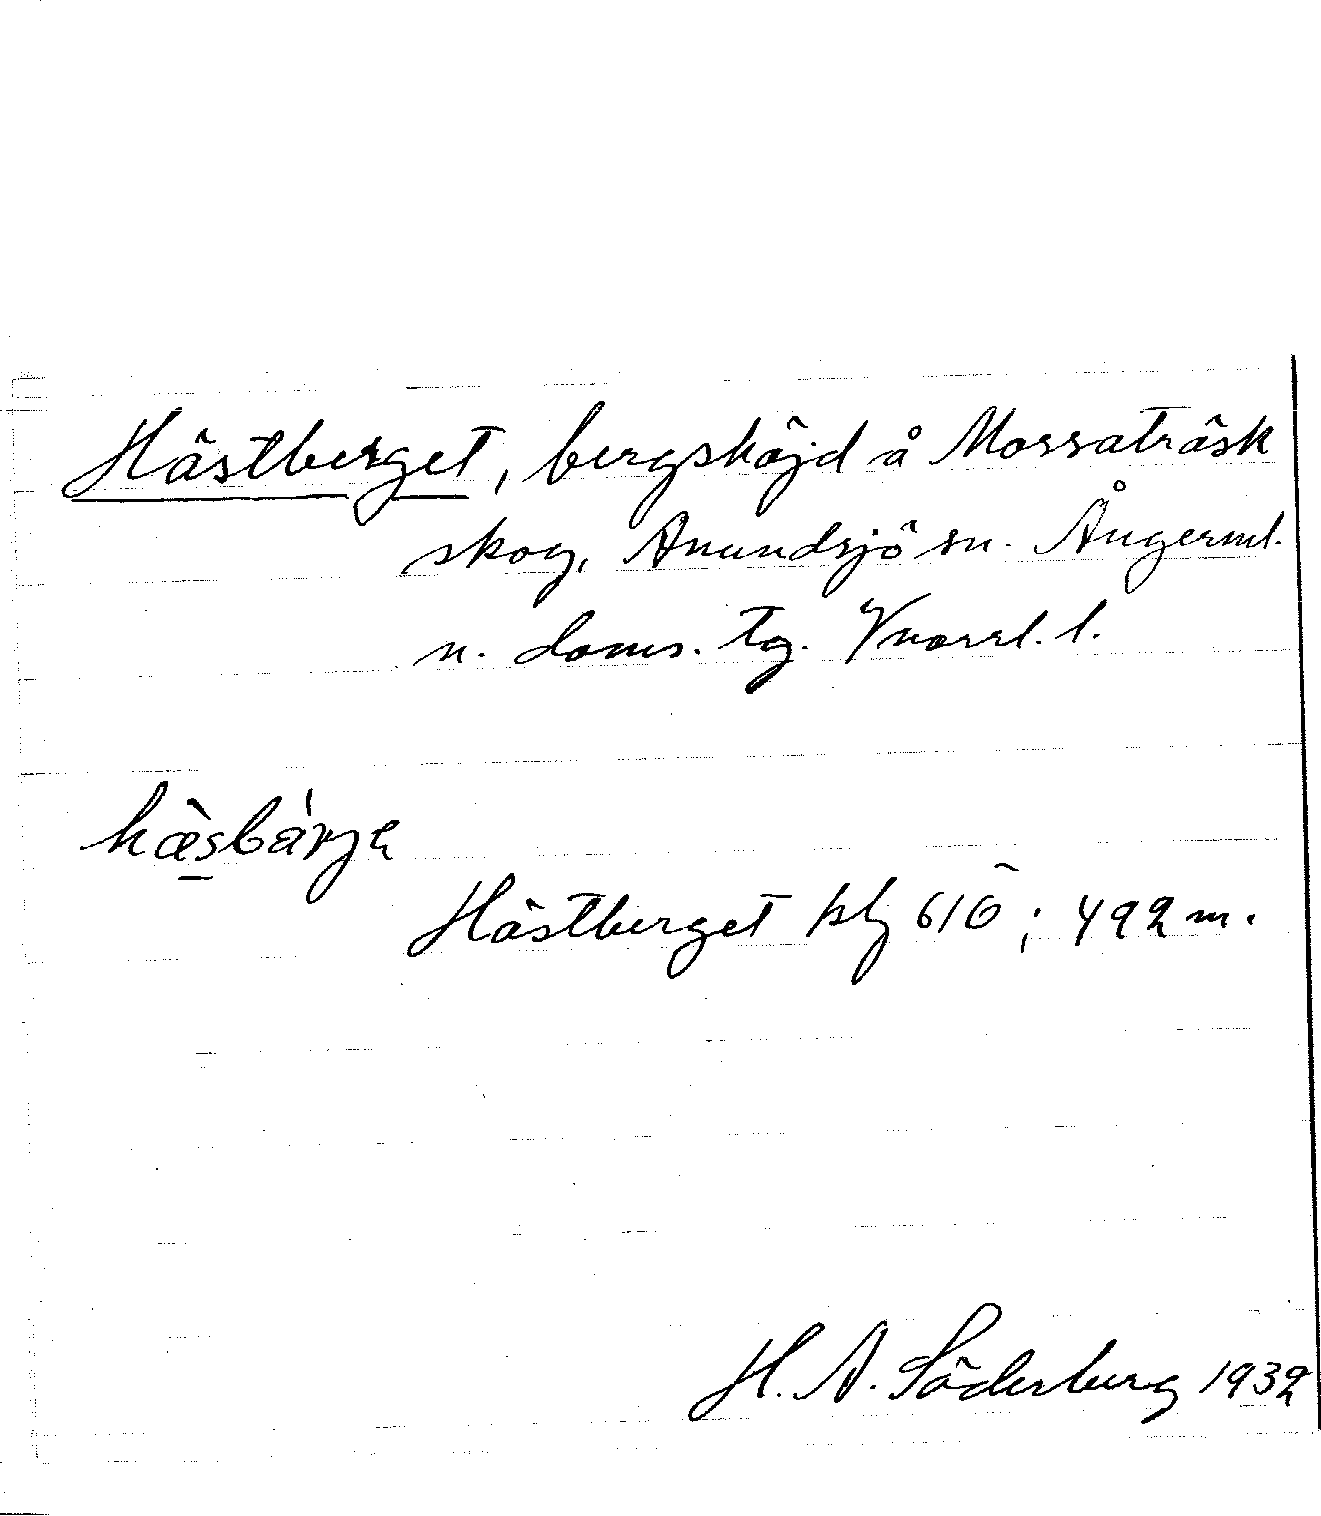 Hästberget, bergshöjd å Morsaträsk
skog, Anundsjö sn. Ångerml.
n. doms. tg. Vnorrl. l.
hæ̀sbárje
Hästberget kbl 616; 492 m.
H. A. Söderberg 1932